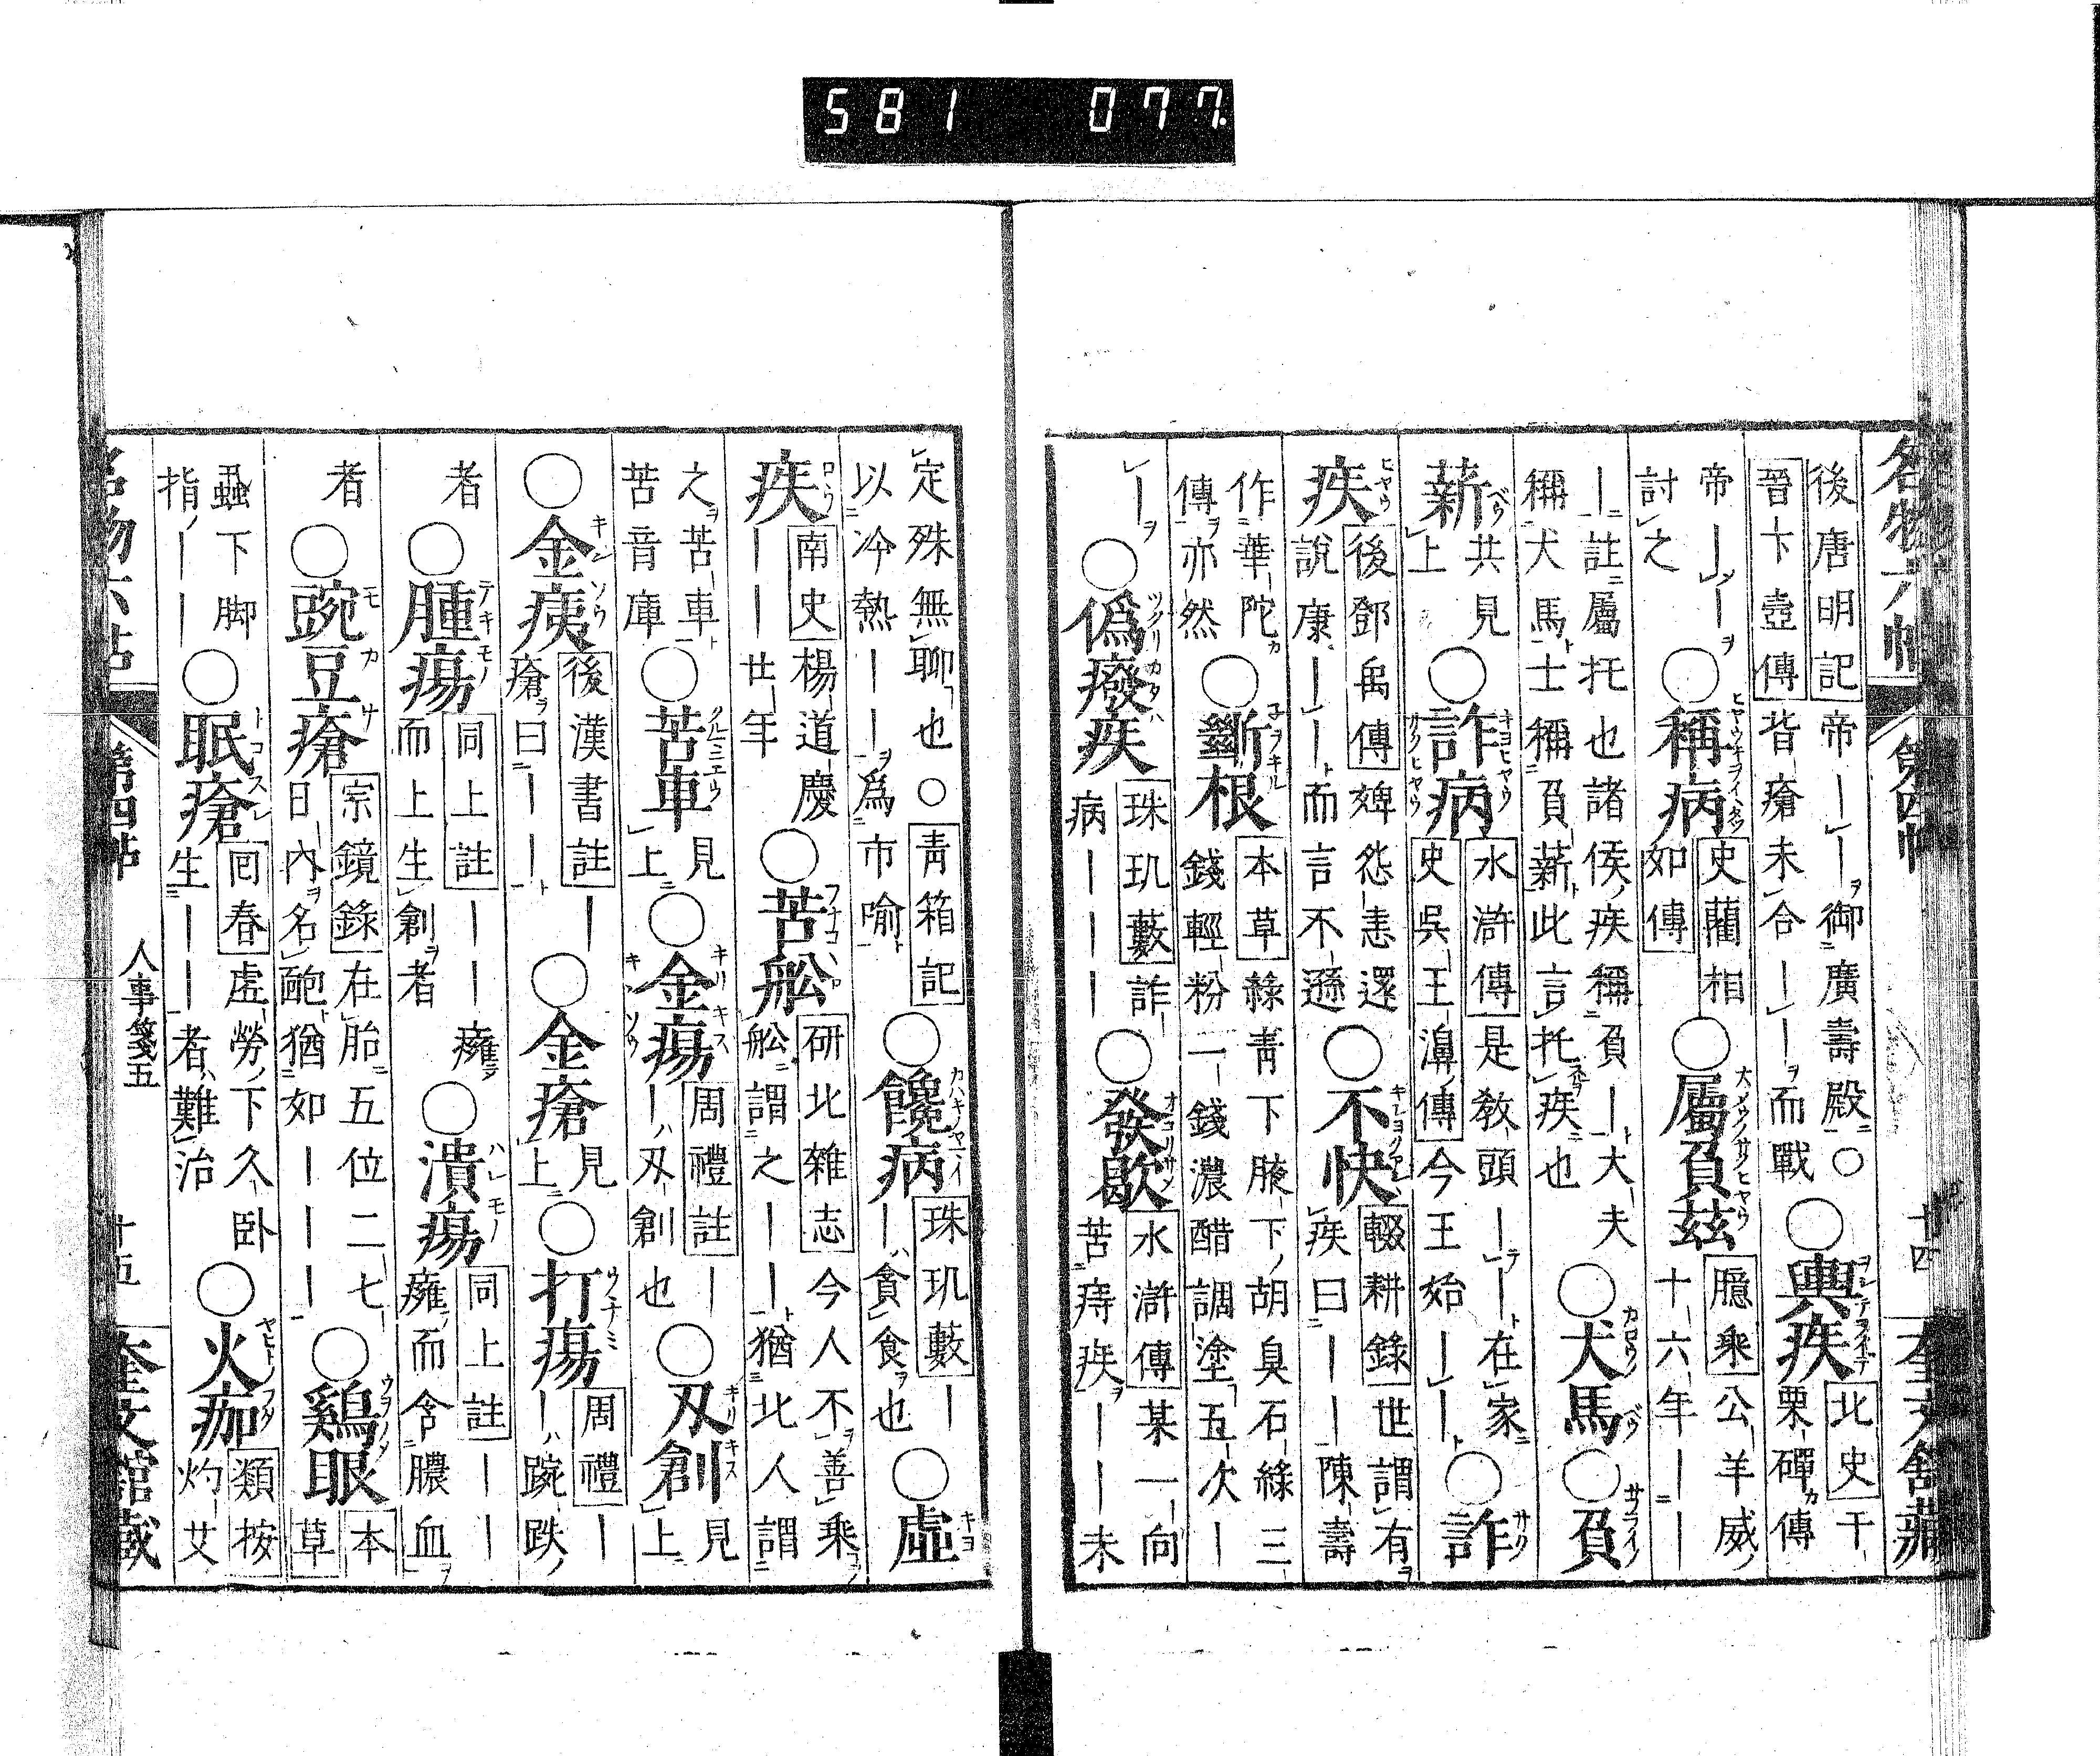 581 077
後唐明記帝——御廣壽殿○
晉卞壼傳背瘡未合——而戰
○輿疾北史干栗磾傳
帝——討之
○稱病史藺相如傳
○屬負茲臆乘公羊威十六年——
—註屬托也諸侯疾稱負—大夫
稱犬馬士稱負薪此言托疾也
○犬馬○負
薪共見上
○詐病水滸傳是教頭——在家
史吳王濞傳今王始——
○詐
疾後鄧禹傳婢怨恚還說康——而言不遜
○不快輟耕錄世謂有疾曰——陳壽
作華陀傳亦然
○斷根本草綠青下腋下胡臭石綠三
錢輕粉一錢濃醋調塗五次—
—
○僞癈疾珠玑藪詐病———
○發歇水滸傳某一向苦痔疾——未
名物六帖
第四帖
十四
奎文館藏
定殊無聊也○青箱記
以冷熱——爲市喻
○饞病珠玑藪—
—貪食也
○虛
疾南史楊道慶——世年
○苦舩研北雜志今人不善乘
舩謂之——猶北人謂
之苦車苦音庫
○苦車見上
○金瘍周禮註—
—刃創也
○刃創見上
○金痍後漢書註—
瘡曰——
○金瘡見上
○打瘍周禮—
—踠跌
者
○腫瘍同上註——癰
而上生創者
○潰瘍同上註——
癰而含膿血
者
○豌豆瘡宗鏡錄在胎五位二七
日內名皰猶如———
○鷄眼本草
蝨下脚指———
○眠瘡回春虛勞下久卧
生———者難治
○火痂類按
灼艾
名物六帖
第四帖
人事箋五
十五
奎文館藏